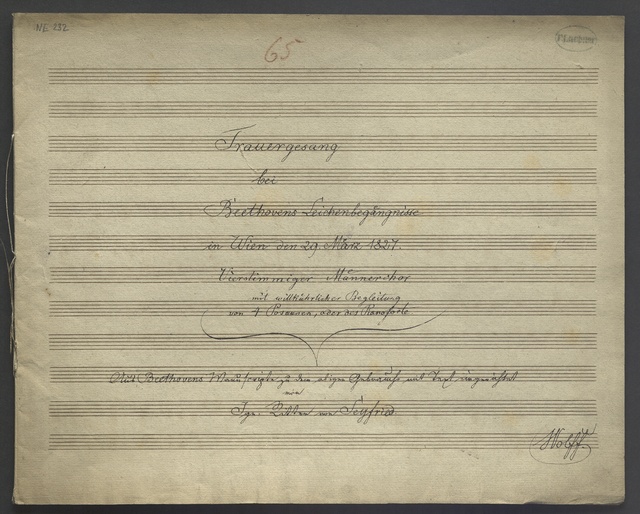 NE 232
65
Trauergesang
bei
Beethovens Leichenbegängnisse
in Wien den 29. März 1827.
Vierstimmiger Männerchor
mit willkührlicher Begleitung
von 4 Posaunen, oder des Pianoforte
Aus Beethovens Manuscripte zu dem obigen Gebrauche mit Text eingerichtet
von
Ign: Ritter von Seyfried.
Wolff.